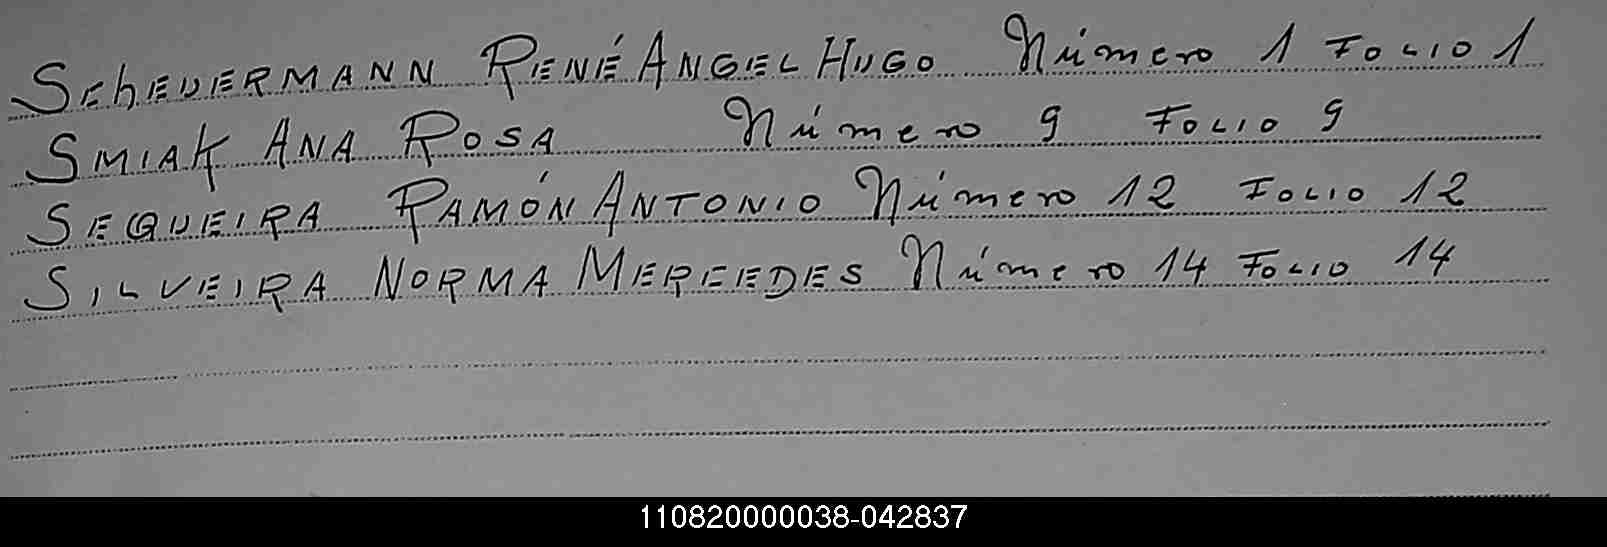 Scheuermann René Angel Hugo Número 1 Folio 1
Smiak Ana Rosa Número 9 Folio 9
Sequeira Ramón Antonio Número 12 Folio 12
Silveira Norma Mercedes Número 14 Folio 14
110820000038-042837